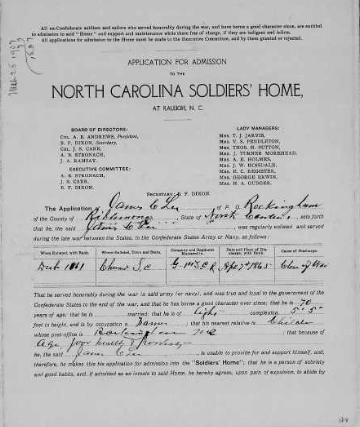 All ex-Confederate soldiers and sailors who served honorably during the war, and have borne a good character since, are entitled
to admission to said "Home," and support and maintenance while there free of charge, if they are indigent and infirm.
All applications for admission to the Home must be made to the Executive Committee, and by them granted or rejected.
APPLICATION FOR ADMISSION
TO THE
NORTH CAROLINA SOLDIERS' HOME,
AT RALEIGH, N. C.
BOARD OF DIRECTORS:
COL. A. B. ANDREWS, President,
B. F. DIXON, Secretary,
COL. J. S. CARR,
A. B. STRONACH,
J. A. RAMSAY.
EXECUTIVE COMMITTEE:
A. B. STRONACH,
J. S. CARR,
B. F. DIXON.
LADY MANAGERS:
MRS. T. J. JARVIS,
MRS. V. S. PENDLETON,
MRS. THOS. H. SUTTON,
MRS. J. TURNER MOREHEAD,
MRS. A. E. HOLMES,
MRS. J. W. HINSDALE,
MRS. GEORGE ERWIN,
MRS. M. A. GUDGER.
SECRETARY B. F. DIXON
The Application of James C Lee of P. O. Rockingham
of the County of Richmond, State of North Carolina, sets forth
that he, the said James C Lee was regularly enlisted and served
during the late war between the States, in the Confederate States Army or Navy, as follows:
When Enlisted, with Rank.
Where Enlisted, Town and State.
Company and Regiment
Cause of Discharge.
1861
S.C
1865
Close of War
That he served honorably during the war in said army (or navy), and was true and loyal to the government of the
Confederate States to the end of the war, and that he has borne a good character ever since; that he is 70
years of age; that he is married; that he is of light complexion 5'.5"
feet in height, and is by occupation a Farmer that his nearest relative is Children
whose post-office is that because of
Age, poor health
he, the said James Lee is unable to provide for and support himself, and,
therefore, he makes this his application for admission into the "Soldiers' Home"; that he is a person of sobriety
and good habits, and if admitted as an inmate to said Home, he hereby agrees, upon pain of expulsion, to abide by